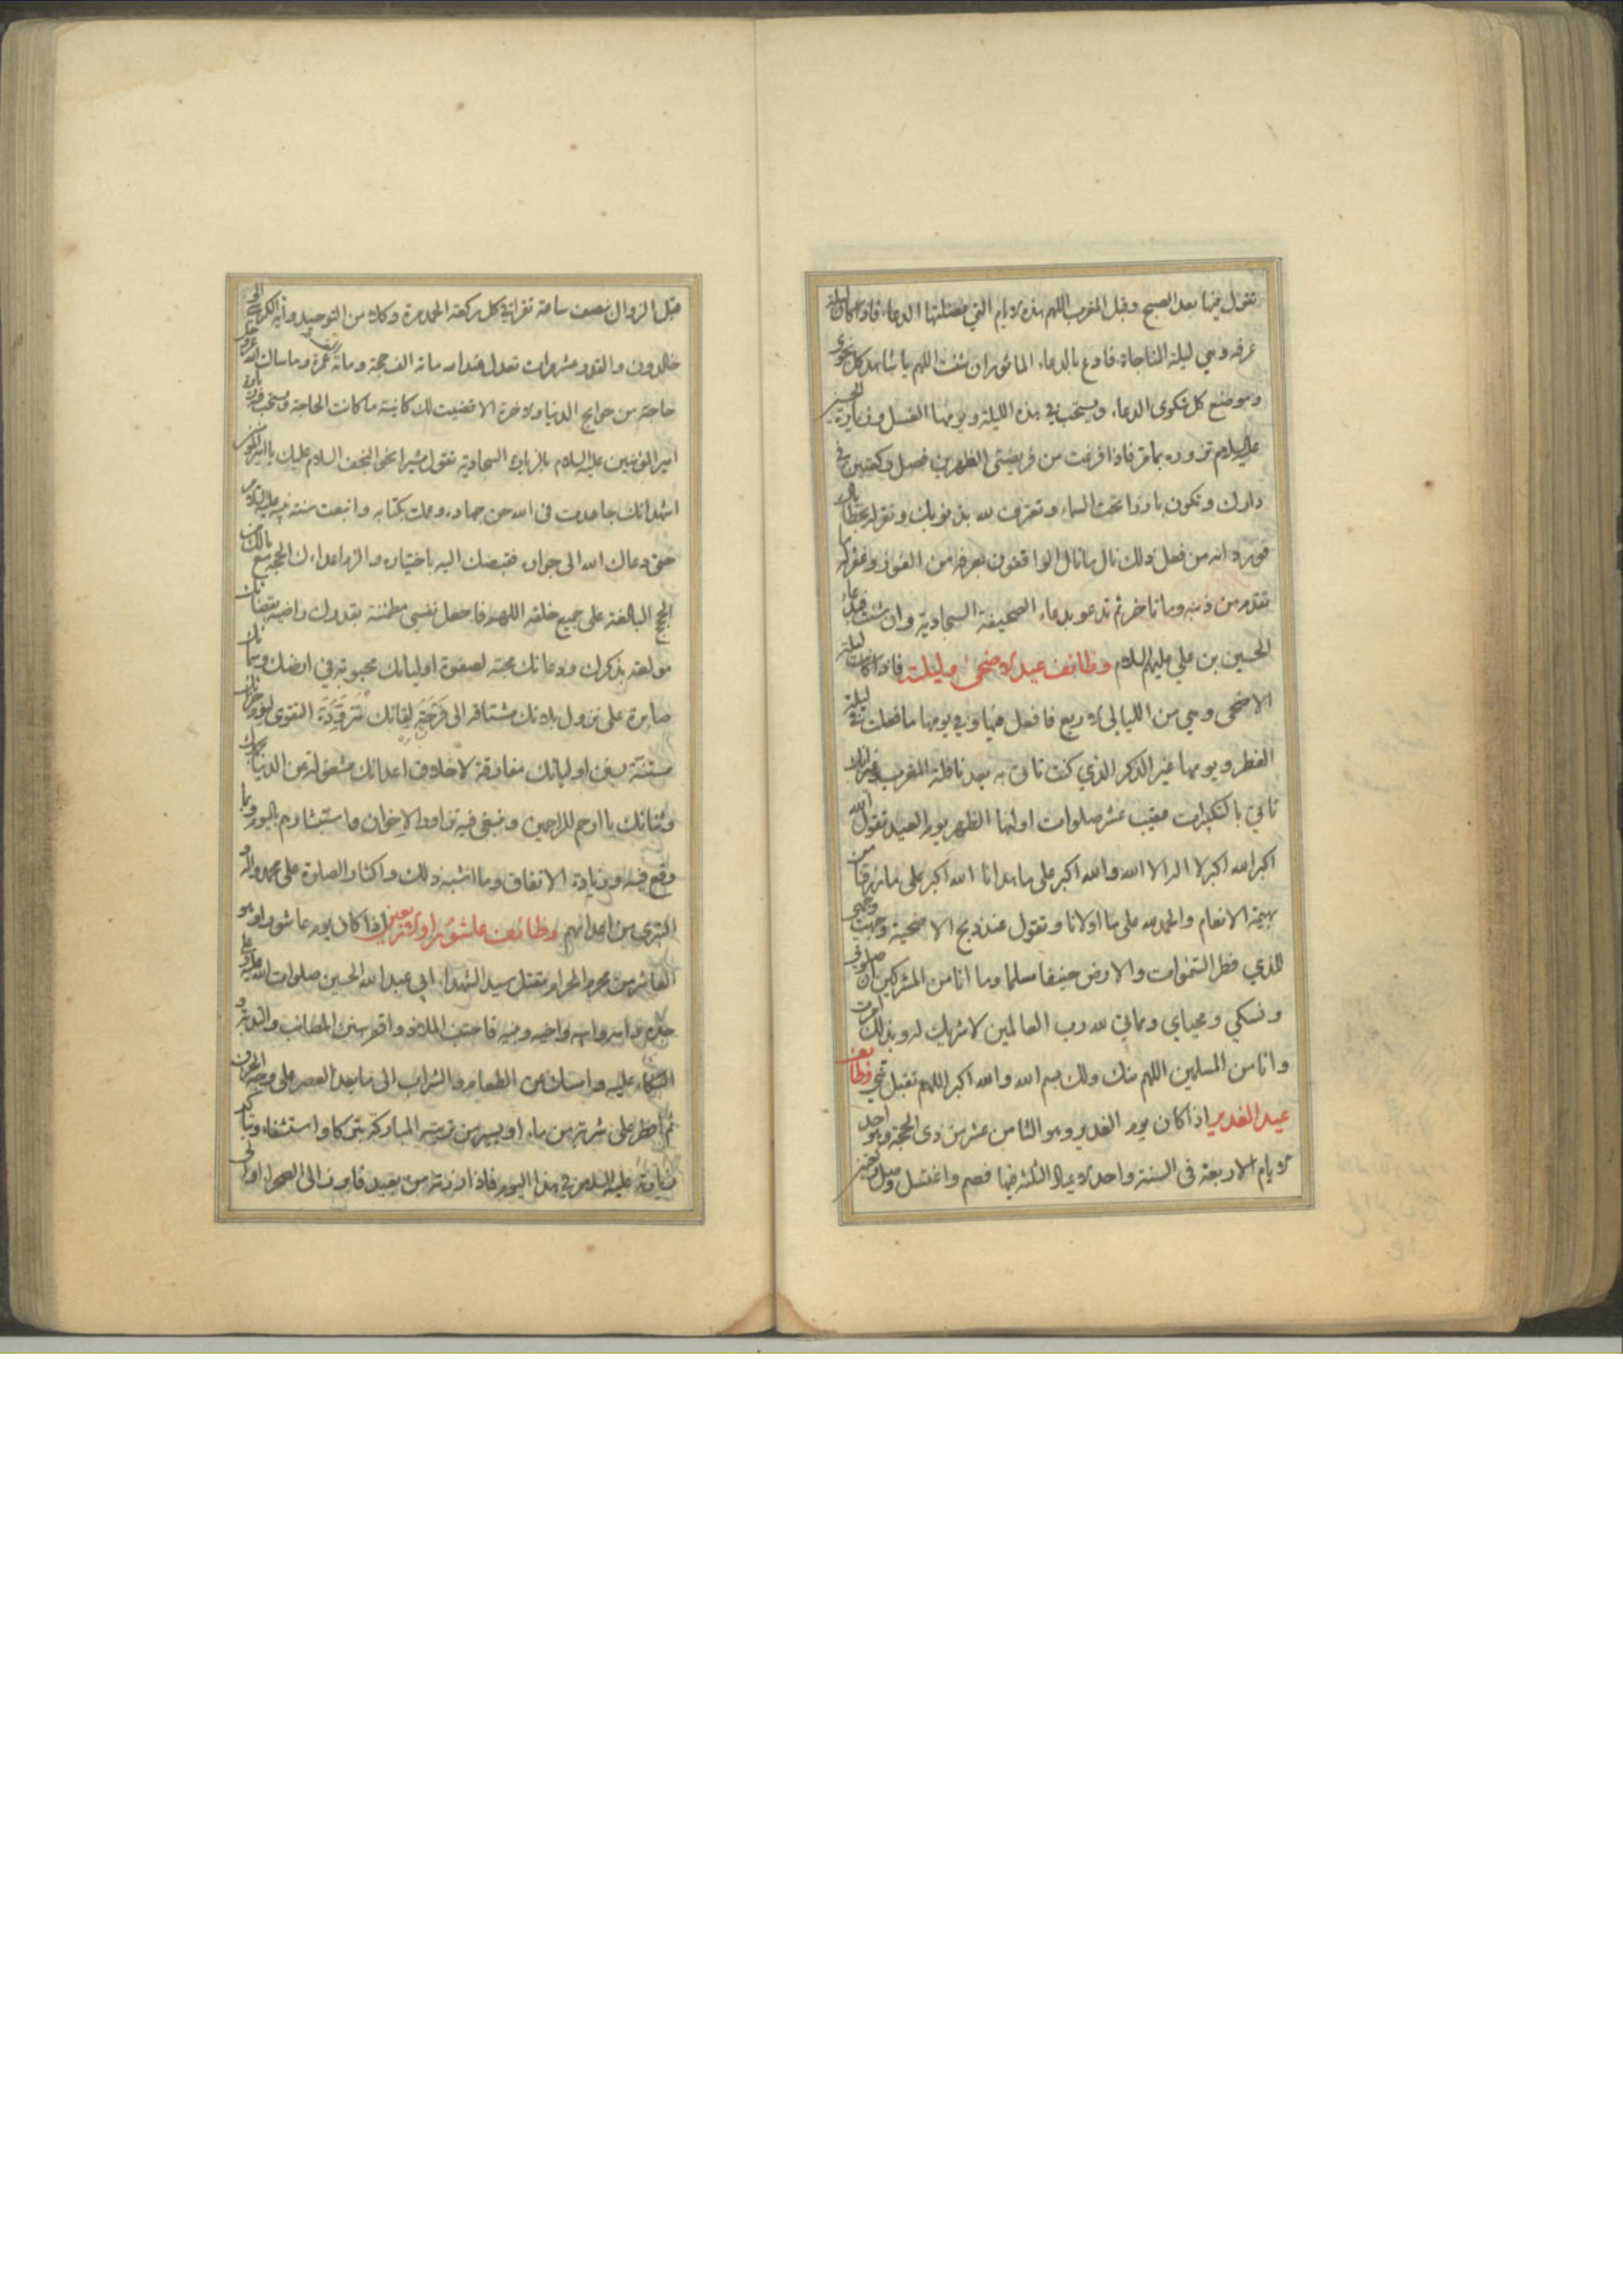 تقول فيها بعد الصبح وقبل المغرب اللهم هذه الايام التي فضلتها الدعاء فاذا كان ليلة
عرفه وهي ليلة المناجاة فادع بالدعاء الماثور ان شئت اللهم يا شاهد كل نجوى
وموضع كل شكوى الدعاء ويستحب في هذه الليلة ويومها الغسل وزيارة الحسين
عليه السلام تزوره بما مر فاذا فرغت من فريضتي الظهرين فصل ركعتين في
دارك وتكون بارزا تحت السماء وتعترف لله بذنوبك وتقر له بخطاياك
فورد انه من فعل ذلك نال ما نال الواقفون بعرفه من الفوز وغفر له ما
تقدم من ذنبه وما تاخر ثم تدعو بدعاء الصحيفة السجادية وان شئت فبدعاء
الحسين بن علي عليهم السلام وظائف عيد الاضحى وليلته فاذا كانت ليلة
الاضحى وهي من الليالي الاربع فافعل فيها وفي يومها ما فعلت في ليلة
الفطر ويومها غير الذكر الذي كنت تاتى به بعد نافلة المغرب وغير انك
تاتي بالتكبيرات عقيب عشر صلوات اولها الظهر يوم العيد تقول الله
اكبر الله اكبر لا اله الا الله والله اكبر على ما هدانا الله اكبر على ما رزقنا من
بهيمة الانعام والحمد لله على ما اولانا وتقول عند ذبح الاضحية وجهت وجهي
للذي فطر السموات والارض حنيفا مسلما وما انا من المشركين ان صلوتي
ونسكي ومحياي ومماتي لله رب العالمين لا شريك له وبذلك امرت
وانا من المسلمين اللهم منك ولك بسم الله والله اكبر اللهم تقبل مني وظائف
عيد الغدير اذا كان يوم الغدير وهو الثامن عشر من ذى الحجة وهو احد
الايام الاربعة فى السنة واحد الاعياد الثلثة فيها فصم واغتسل وصل ركعتين
قبل الزوال بنصف ساعة تقرا في كل ركعة الحمد مرة وكلا من التوحيد وآية الكرسي الى
خالدون والقدر عشر مرات تعدل عند الله مائة الف حجة ومائة الف عمرة وما سالت الله عز وجل
حاجة من حوايج الدنيا والاخرة الا قضيت لك كائنة ما كانت الحاجة ويستحب فيه زيارة
امير المؤمنين عليه السلام بالزيارة السجادية تقول مشيرا نحو النجف السلام عليك يا امير المؤمنين
اشهد انك جاهدت فى الله حق جهاده وعملت بكتابه واتبعت سنة نبيه عليه السلام
حتى دعاك الله الى جواره فقبضك اليه باختياره والزم اعداءك الحجة مع مالك من
الحجج البالغة على جميع خلقه اللهم فاجعل نفسي مطمئنة بقدرك راضية بقضائك
مولعة بذكرك ودعائك محبة لصفوة اوليائك محبوبة في ارضك وسمائك
صابرة على نزول بلائك مشتاقه الى فرحة لقائك متزودة التقوى ليوم جزائك
مستنة بسنن اوليائك مفارقة لاخلاق اعدائك مشغولة عن الدنيا بحمدك
وثنائك يا ارحم الراحمين وينبغي فيه تزاور الاخوان واستبشارهم باليوم وبما
وقع فيه وزيادة الانفاق وما اشبه ذلك واكثار الصلوة على محمد وآله و
التبري من اعدائهم وظائف عاشورا والاربعين اذا كان يوم عاشورا وهو
العاشر من محرم الحرام مقتل سيد الشهداء ابي عبد الله الحسين صلوات الله عليه وعلى
جده وابيه وامه واخيه وبنيه فاجتنب الملاذ واقم سنن المصائب والندبة و
البكاء عليه وامسك عن الطعام والشراب الى ما بعد العصر على وجه الحزن
ثم افطر على شربة من ماء او يسير من تربته المباركة تبركا واستشفاء وتاكد
زيارته عليه السلام في هذا اليوم فاذا زرته من بعيد فابرز الى الصحرا او الى